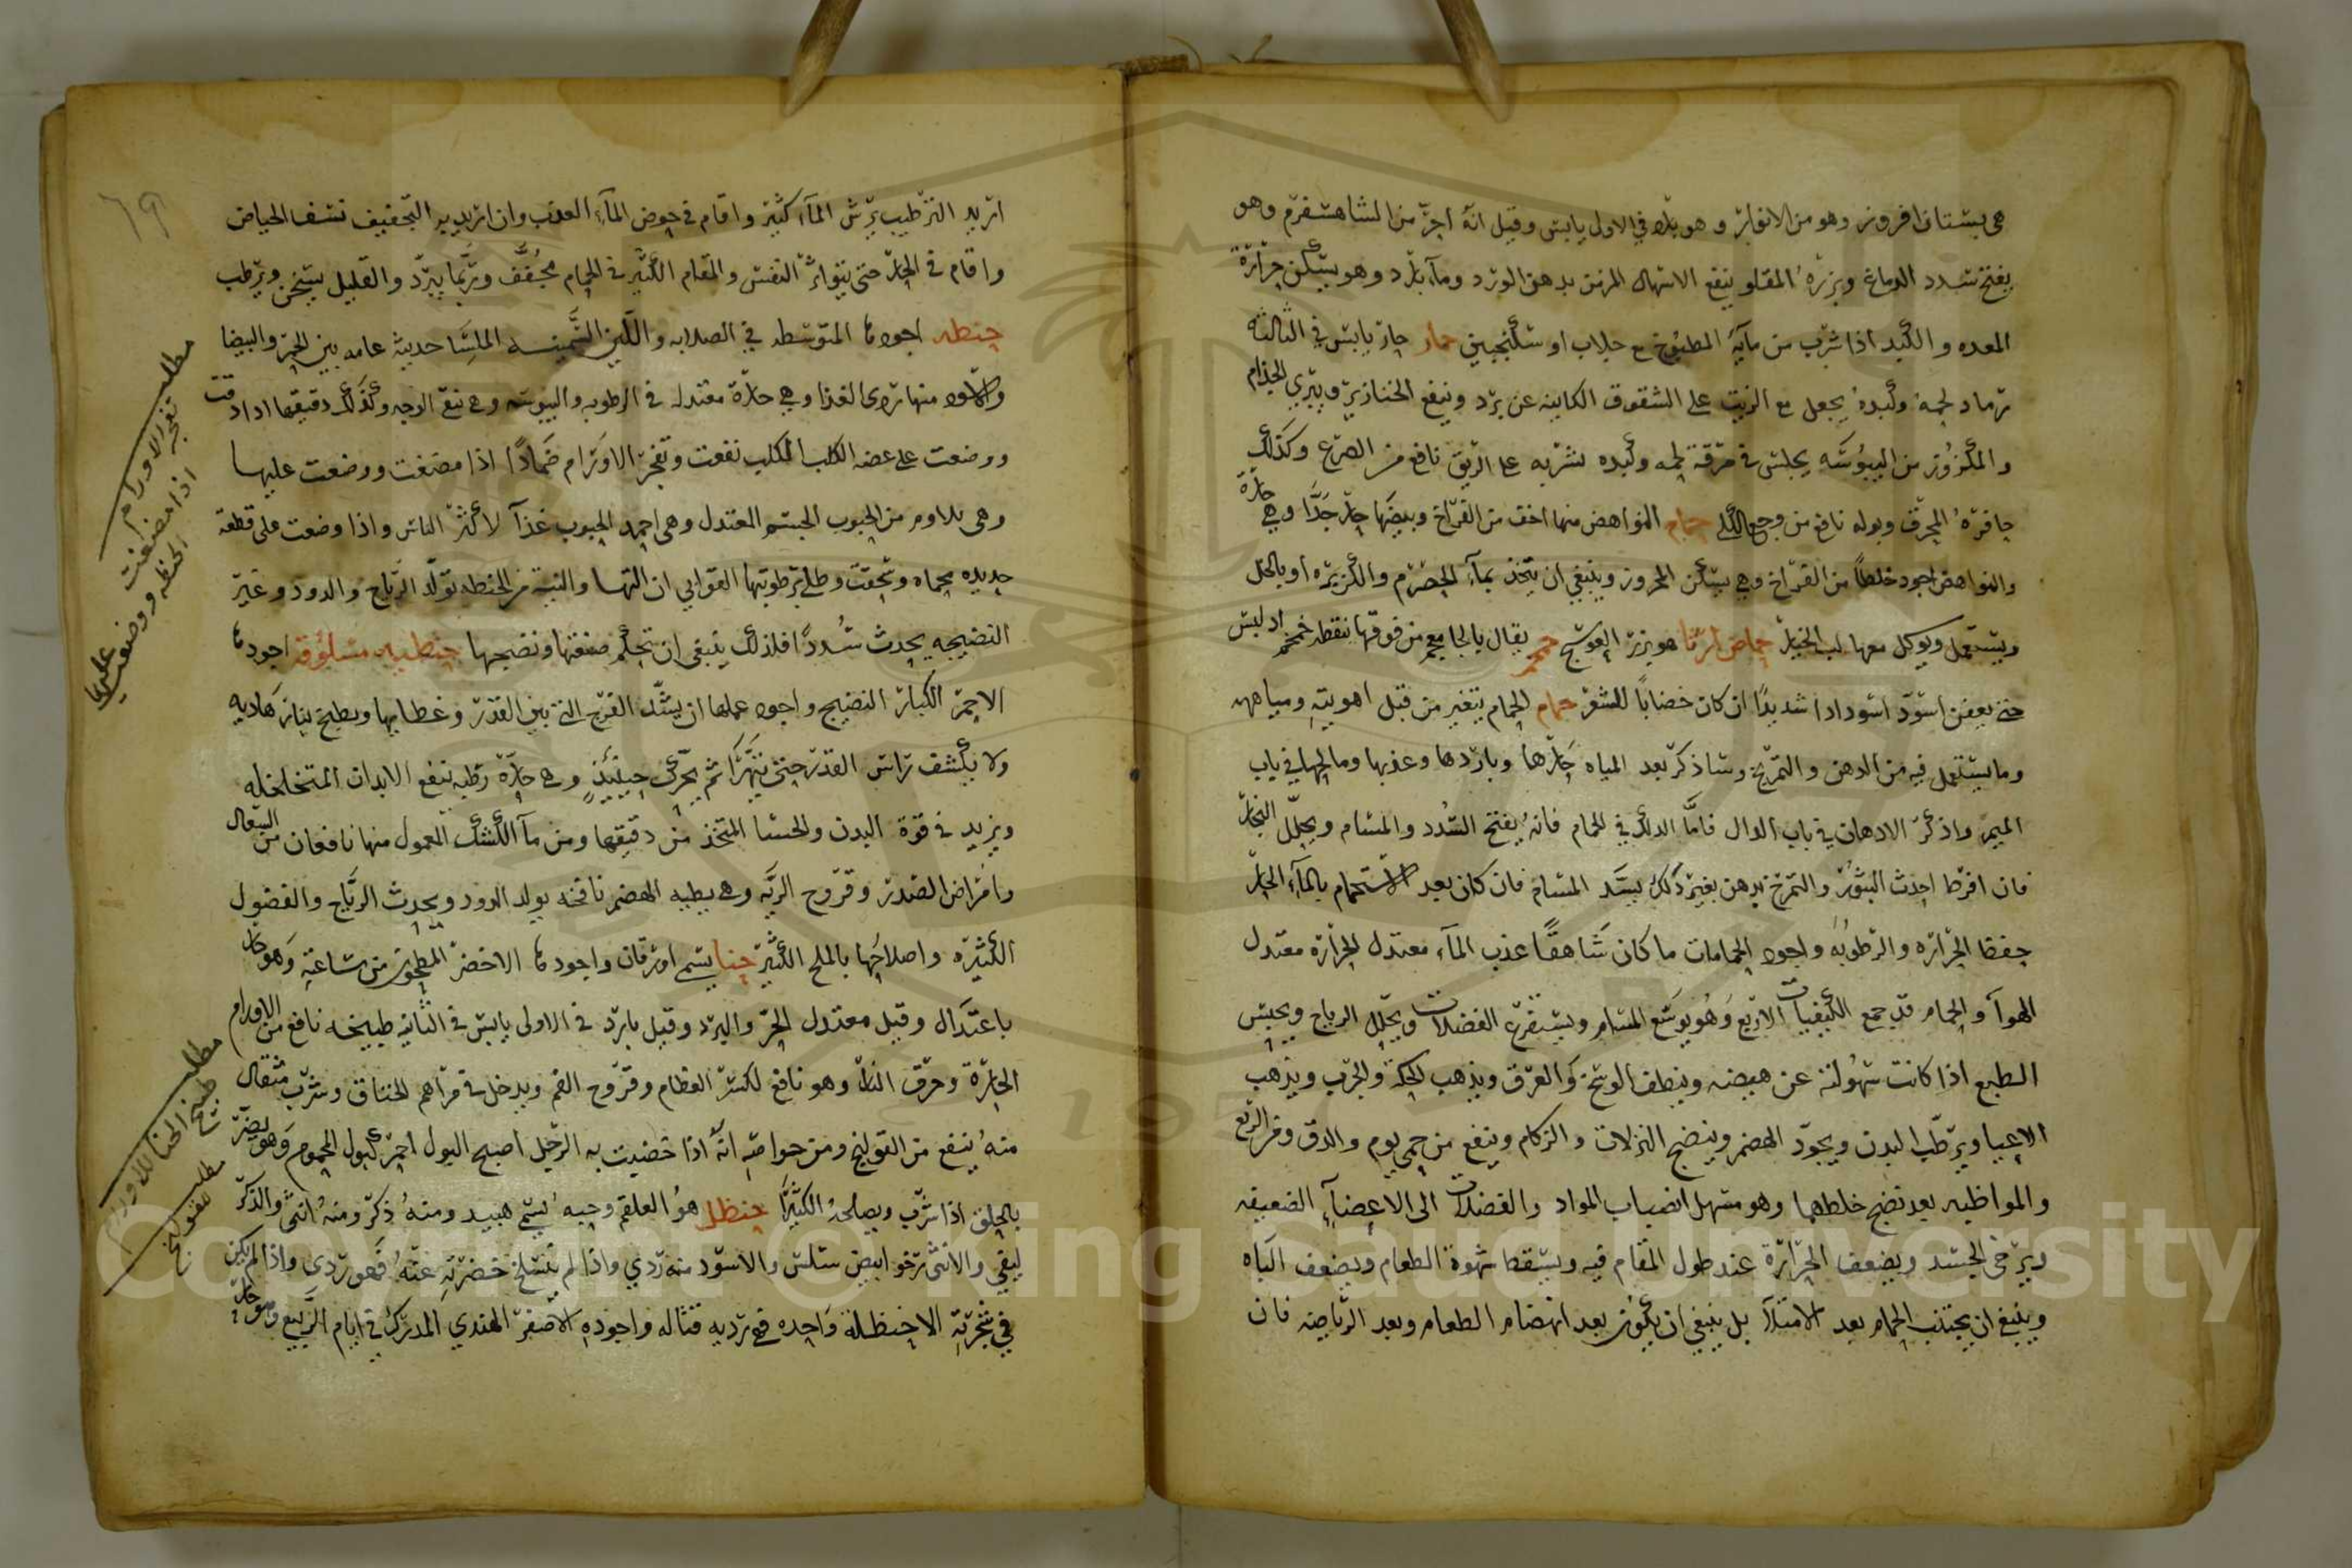 هى بستان افروز وهو من الانوار وهو بارد في الاول يابس وقيل انه احر من الشاهسفرم وهو
يفتح سدد الدماغ وبزره المقلو ينفع الاسهال المزمن بدهن الورد وماء بارد وهو يسكن حرارة
المعده والكبد اذا شرب من مآئه المطبوخ مع جلاب او سكنجبين حمار حار يابس في الثالثة
رماد لحمه وكبده يجعل مع الزيت على الشقوق الكاينه عن برد وينفع الخنازير ويبري الجذام
والمكزوز من اليبوسه يجلس في مرقة لحمه وكبده نشربه على الريق نافع من الصرع وكذلك
حافره المحرق وبوله نافع من وجع الكلى حمام النواهض منها اخف من الفراخ وبيضها حار جدا وهي حارة
والنواهض اجود خلطا من الفراخ وهي يسكن المحرور وينبغي ان يتخذ بماء الحصرم والكزبره او بالخل
ويستعمل ويوكل معها لب الخيار حماض ارنا هو بزر العوسج حمحم يقال بالجا معجم من فوقها نقطه خمخم اد ليس
حتى يعفن اسود اسودادا شديدا ان كان خضابا للشعر حمام الحمام يتغير من قبل اهويته ومياهه
وما يستعمل فيه من الدهن والتمريخ وساذكر بعد المياه حارها وباردها وعذبها ومالحها في باب
الميم واذكر الادهان في باب الدال فاما الدلك في الحمام فانه يفتح السدد والمسام ويحلل البخار
فان افرط احدث البثور والتمرخ بدهن بغير دلك يسد المسام فان كان بعد الاستحمام بالمآء الحار
حفظ الحراره والرطوبه واجود الحمامات ما كان شاهقا عذب المآء معتدل الحرارة معتدل
الهوآ والحمام قد جمع الكيفيات الاربع وهو يوسع المسام ويستفرغ الفضلات ويحلل الرياح ويحبس
الطبع اذا كانت سهولته عن هيضه وينظف الوسخ والعرق ويذهب الحكة والجرب ويذهب
الاعيا ويرطب البدن ويجود الهضم وينضج النزلات والزكام وينفع من حمى يوم والدق وفر الربع
والمواظبه بعد نضج خلطها وهو مسهل انصباب المواد والفضلات الى الاعضآء الضعيفه
ويرخى الجسد ويضعف الحرارة عند طول المقام فيه ويسقط شهوة الطعام ويضعف الباه
وينبغي ان يجتنب الحمام بعد الامتلآ بل ينبغي ان يكون بعد انهضام الطعام وبعد الرياضه فان
٦٩
اريد الترطيب برش المآء كثير واقام في حوض المآء العذب وان اريد به التجفيف نشف الحياض
واقام في الحار حتى يتواتر النفس والمقام الكثير في الحمام مجفف وربما يبرد والقليل يسخن ويرطب
حنطه اجودها المتوسطه في الصلابه واللين السمينه الملسا حديثة عامه بين الحمر والبيضا
والاسود منها ردى الغذا وهي حارة معتدله في الرطوبه واليبوسه وهى تنقى الوجه وكذلك دقيقها اذا دقت
ووضعت على عضه الكلب الكلب نفعت وتفجر الاورام ضمادا اذا مضغت ووضعت عليها
وهى تلاوم من الحبوب الجسم المعتدل وهى احمد الحبوب غذآ لاكثر الناس واذا وضعت على قطعة
حديده محماه وسحقت وطلى برطوبتها القوابي ان النها والنية من الحنطه تولد الرياح والدود وغير
النضيجه يحدث سددا فلذلك ينبغي ان تحكم صنعتها ونضجها حنطبه مسلوقه اجودها
الاحمر الكبار النضيج واجود عملها ان يسد الفرج التي بين القدر وغطايها ويطبخ بنار هاديه
ولا يكشف راس القدر حتى يتهرا ثم يحرك حينئذ وهى حارة رطبه تنفع الابدان المتخلخله
ويزيد في قوة البدن والحسا المتخذ من دقيقها ومن مآ الكشك المعمول منها نافعان من السعال
وامراض الصدر وقروح الريه وهى بطيه الهضم نافخه يولد الدود ويحدث الرياح والفضول
الكثيره واصلاحها بالملح الكثير حنا يسمى اورقان واجودها الاخضر المطحون من ساعته وهو حار
باعتدال وقيل معتدل الحر والبرد وقيل بارد في الاولى يابس في الثانيه طبيخه نافع من الاورام
الحارة وحرق النار وهو نافع لكسر العظام وقروح الفم ويدخل في مراهم الخناق وشرب مثقال
منه ينفع من القولنج ومن خواصه انه اذا خضبت به الرجل اصبح البول احمر كبول المحموم وهو يضر
بالحلق اذا شرب ويصلحه الكثيرا حنظل هو العلقم وحبه يسمى هبيد ومنه ذكر ومنه انثى والذكر
ليفي والانثى رخو ابيض سلس والاسود منه ردي واذا لم تنسلخ خضرته عنه فهو ردى واذا لم يكن
في شجرته الا حنظلة واحده فهي رديه قتاله واجوده الاصفر الهندي المدرك في ايام الربيع وهو حار
مطلب
تفجر الاورام
اذا مضغت
الحنطه ووضعت
عليها
مطلب
طبيخ الحنا للاورام
مطلب
قولنج
Copyright © King Saud University